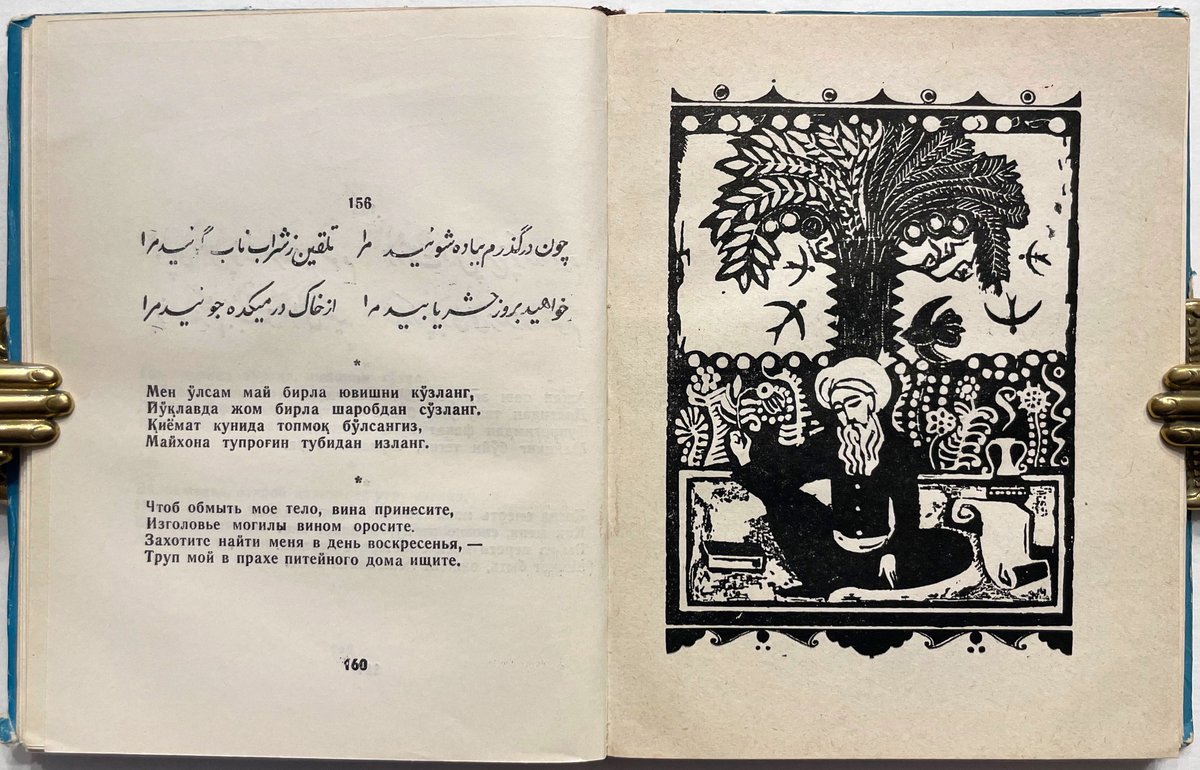 156
چون درگذرم بباده شوئید مرا تلقین ز شراب ناب گوئید مرا
خواهید بروز حشر یابید مرا از خاک در میکده جوئید مرا
*
Мен ўлсам май бирла ювишни кўзланг,
Йўқлавда жом бирла шаробдан сўзланг.
Қиёмат кунида топмоқ бўлсангиз,
Майхона тупроғин тубидан изланг.
*
Чтоб обмыть мое тело, вина принесите,
Изголовье могилы вином оросите.
Захотите найти меня в день воскресенья, —
Труп мой в прахе питейного дома ищите.
160